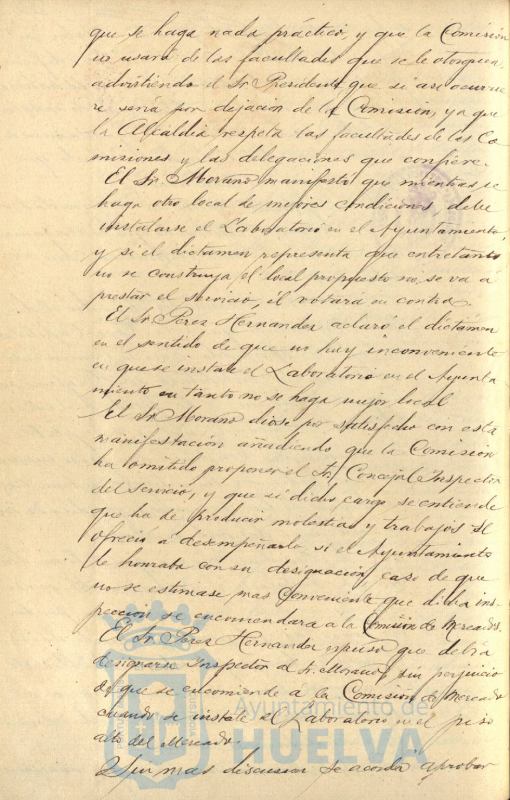 que se haga nada práctico, y que la Comisión
no usará de las facultades que se le otorguen,
advirtiendo el Sr. Presidente que si asi ocurrie
re será por dejación de la Comisión, ya que
la Alcaldía respeta las facultades de las Co
misiones y las delegaciones que confiere.
El Sr. Morano manifestó que mientras se
haga otro local de mejores condiciones debe
instalarse el Laboratorio en el Ayuntamiento,
y si el dictamen representa que entretanto
no se construya el local propuesto no se va á
prestar el servicio, él votará en contra.
El Sr. Perez Hernandez aclaró el dictámen
en el sentido de que no hay inconveniente
en que se instale el Laboratorio en el Ayunta
miento en tanto no se haga mejor local
El Sr. Morano diose por satisfecho con esta
manifestación añadiendo que la Comisión
ha omitido proponer el Sr. Concejal Inspector
del servicio, y que si dicho cargo se entiende
que ha de producir molestias y trabajos se
ofrecia a desempeñarlo si el Ayuntamiento
le honraba con su designación, caso de que
no se estimase mas conveniente que dicha ins-
pección se encomendara a la Comisión de Mercados.
El Sr. Perez Hernandez expuso que debia
designarse Inspector al Sr. Morano, sin perjuicio
de que se encomiende á la Comision de Mercado
cuando se instale el Laboratorio en el piso
alto del Mercado.
Sin mas discusion se acordó aprobar
Ayuntamiento de
HUELVA